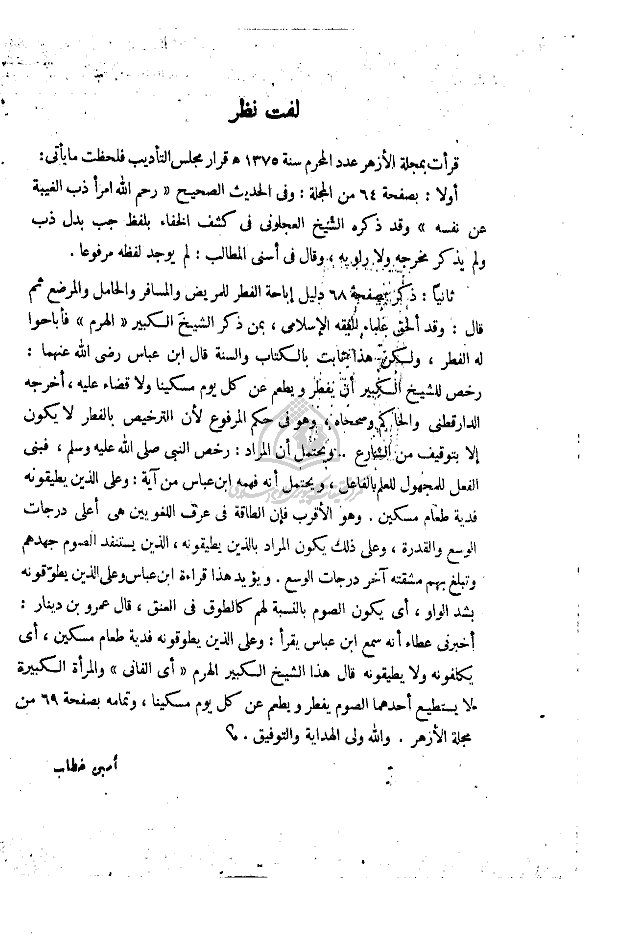 لفت نظر
قرأت بمجلة الأزهر عدد المحرم سنة ١٣٧٥ ﻫ قرار مجلس التأديب فلحظت ما يأتى :
أولا : بصفحة ٦٤ من المجلة : وفى الحديث الصحيح « رحم الله امرأ ذب الغيبة
عن نفسه » وقد ذكره الشيخ العجلونى فى كشف الخفاء بلفظ جب بدل ذب
ولم يذكر مخرجه ولا راويه ، وقال فى أسنى المطالب : لم يوجد لفظه مرفوعا .
ثانيا : ذكر بصفحة ٦٨ دليل إباحة الفطر للمريض والمسافر والحامل والمرضع ثم
قال : وقد ألحق علماء الفقه الإسلامى ، بمن ذكر الشيخ الكبير « الهرم » فأباحوا
له الفطر ، ولكن هذا ثابت بالكتاب والسنة قال ابن عباس رضى الله عنهما :
رخص للشيخ الكبير أن يفطر و يطعم عن كل يوم مسكينا ولا قضاء عليه ، أخرجه
الدارقطنى والحاكم وصححاه ، وهو فى حكم المرفوع لأن الترخيص بالفطر لا يكون
إلا بتوقيف من الشارع .. ويحتمل أن المراد : رخص النبي صلى الله عليه وسلم ، فبنى
الفعل للمجهول للعلم بالفاعل ، و يحتمل أنه فهمه ابن عباس من آية : وعلى الذين يطيقونه
فدية طعام مسكين . وهو الأقرب فإن الطاقة فى عرف اللغويين هى أعلى درجات
الوسع والقدرة ، وعلى ذلك يكون المراد بالذين يطيقونه ، الذين يستنفد الصوم جهدهم
وتبلغ بهم مشقته آخر درجات الوسع . و يؤيد هذا قراءة ابن عباس وعلى الذين يطوّقونه
بشد الواو ، أى يكون الصوم بالنسبة لهم كالطوق فى العنق ، قال عمرو بن دينار :
أخبرنى عطاء أنه سمع ابن عباس يقرأ : وعلى الذين يطوقونه فدية طعام مسكين ، أى
يكلفونه ولا يطيقونه قال هذا الشيخ الكبير الهرم « أى الفانى » والمرأة الكبيرة
لا يستطيع أحدهما الصوم يفطر و يطعم عن كل يوم مسكينا ، وتمامه بصفحة ٦٩ من
مجلة الأزهر . والله ولى الهداية والتوفيق .
أمين خطاب